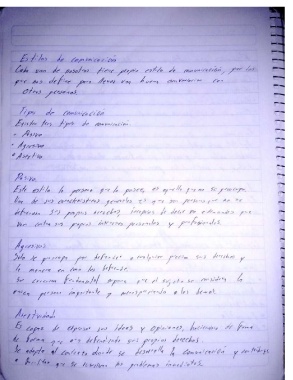 Estilos de comunicación
Cada uno de nosotros tiene propio estilo de comunicación, por los
que nos define para llevar una buena comunicación con
otras personas
Tipos de comunicación
Existen tres tipos de comunicación
- Pasivo
• Agresivo
• Asertivo
Pasivo
Este estilo la persona que lo posee, es aquella que no se preocupa
Una de sus características generales es que son personas que no se
defienden sus propios derechos,
sus propios intereses personales y profesionales.
Agresivo
Solo se preocupa por defender a cualquier precio sus derechos y
la manera en como los defiende
Su creencia fundamental es que el se considera la
única persona importante y a los demás.
Asertividad
Es capaz de expresar sus ideas y opiniones,
de forma que defendiendo sus propios derechos.
Se adapta al contexto donde se desarrolla la comunicación y contribuye
a que se resuelvan los problemas inmediatos.